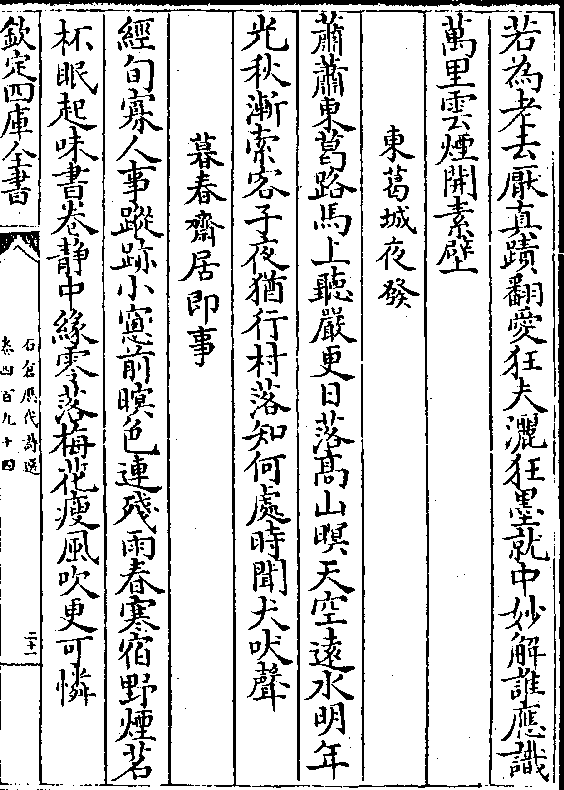 若為老去厭真蹟翻愛狂夫灑狂墨就中妙解誰應識
萬里雲煙開素壁
東葛城夜發
蕭蕭東葛路馬上聽嚴更日落高山暝天空遠水明年
光秋漸索客子夜猶行村落知何處時聞犬吠聲
暮春齋居即事
經旬寡人事蹤跡小窓前暝色連殘雨春寒宿野煙茗
杯眠起味書卷静中緣零落梅花瘦風吹更可憐
欽定四庫全書
石倉歷代詩選
卷四百九十四
二十一